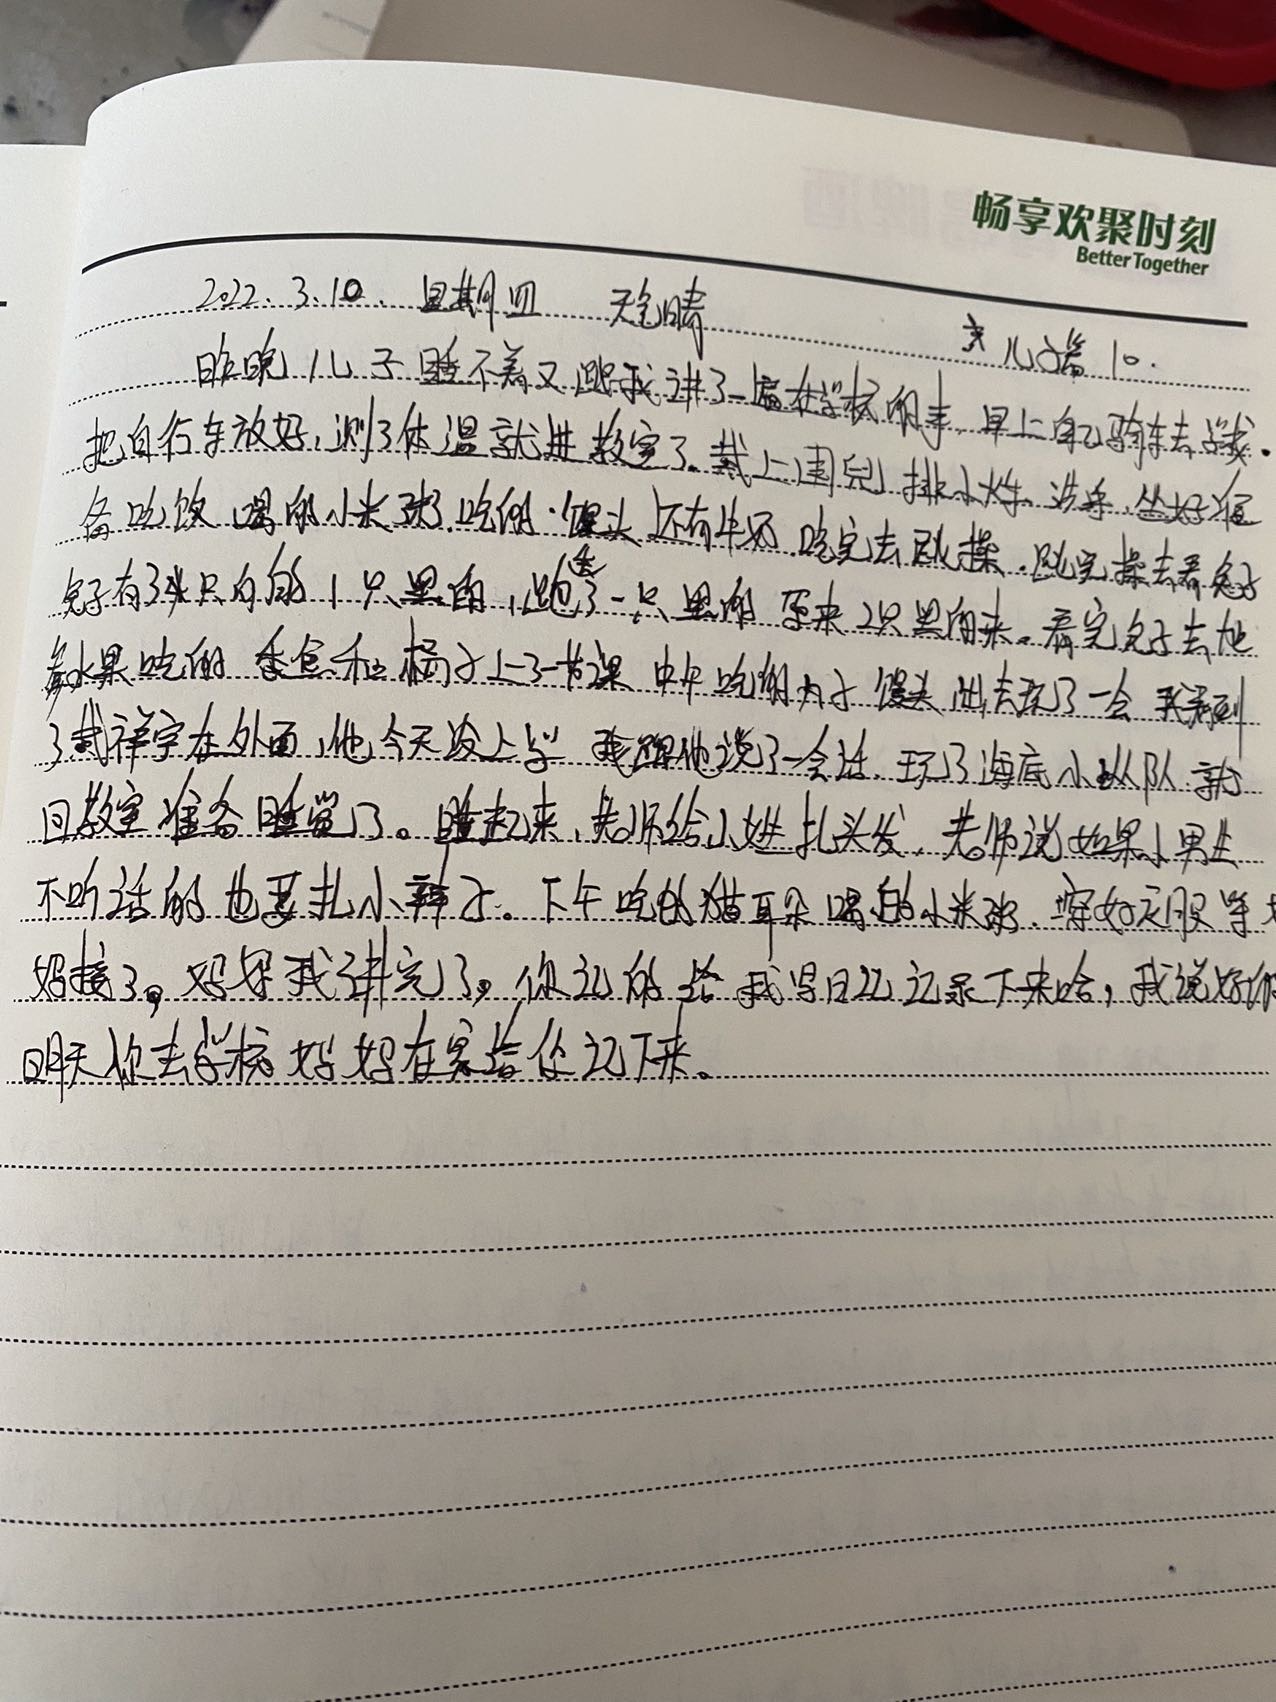 畅享欢聚时刻
Better Together
2022.3.10. 星期四 天气晴
儿子篇10.
昨晚儿子睡不着又跟我讲了一遍在学校的事.早上自己骑车去学我.
把自行车放好,测了体温就进教室了.戴上围兜排小火车.洗手.坐好准
备吃饭 喝的小米粥.吃的.馒头 还有牛奶 吃完去跳操.跳完操去看兔子
兔子有3只白的1只黑的,跑丢了一只黑的 原来2只黑的来.看完兔子去地
水果吃的 香仓和橘子上了一节课 中午吃的丸子 馒头 出去玩了一会 我看到
了戴祥宇在外面,他今天没上学 我跟他说了一会话.玩了海底小纵队 就
回教室准备睡觉了。睡起来,老师给小姓扎头发,老师说如果小男生
不听话的也要扎小辫子。下午吃的猫耳朵喝的小米粥.穿好衣服等
妈接了,妈妈我讲完了,你记的给我写日记记录下来哈,我说好的
明天你去学校妈妈在家给你记下来。